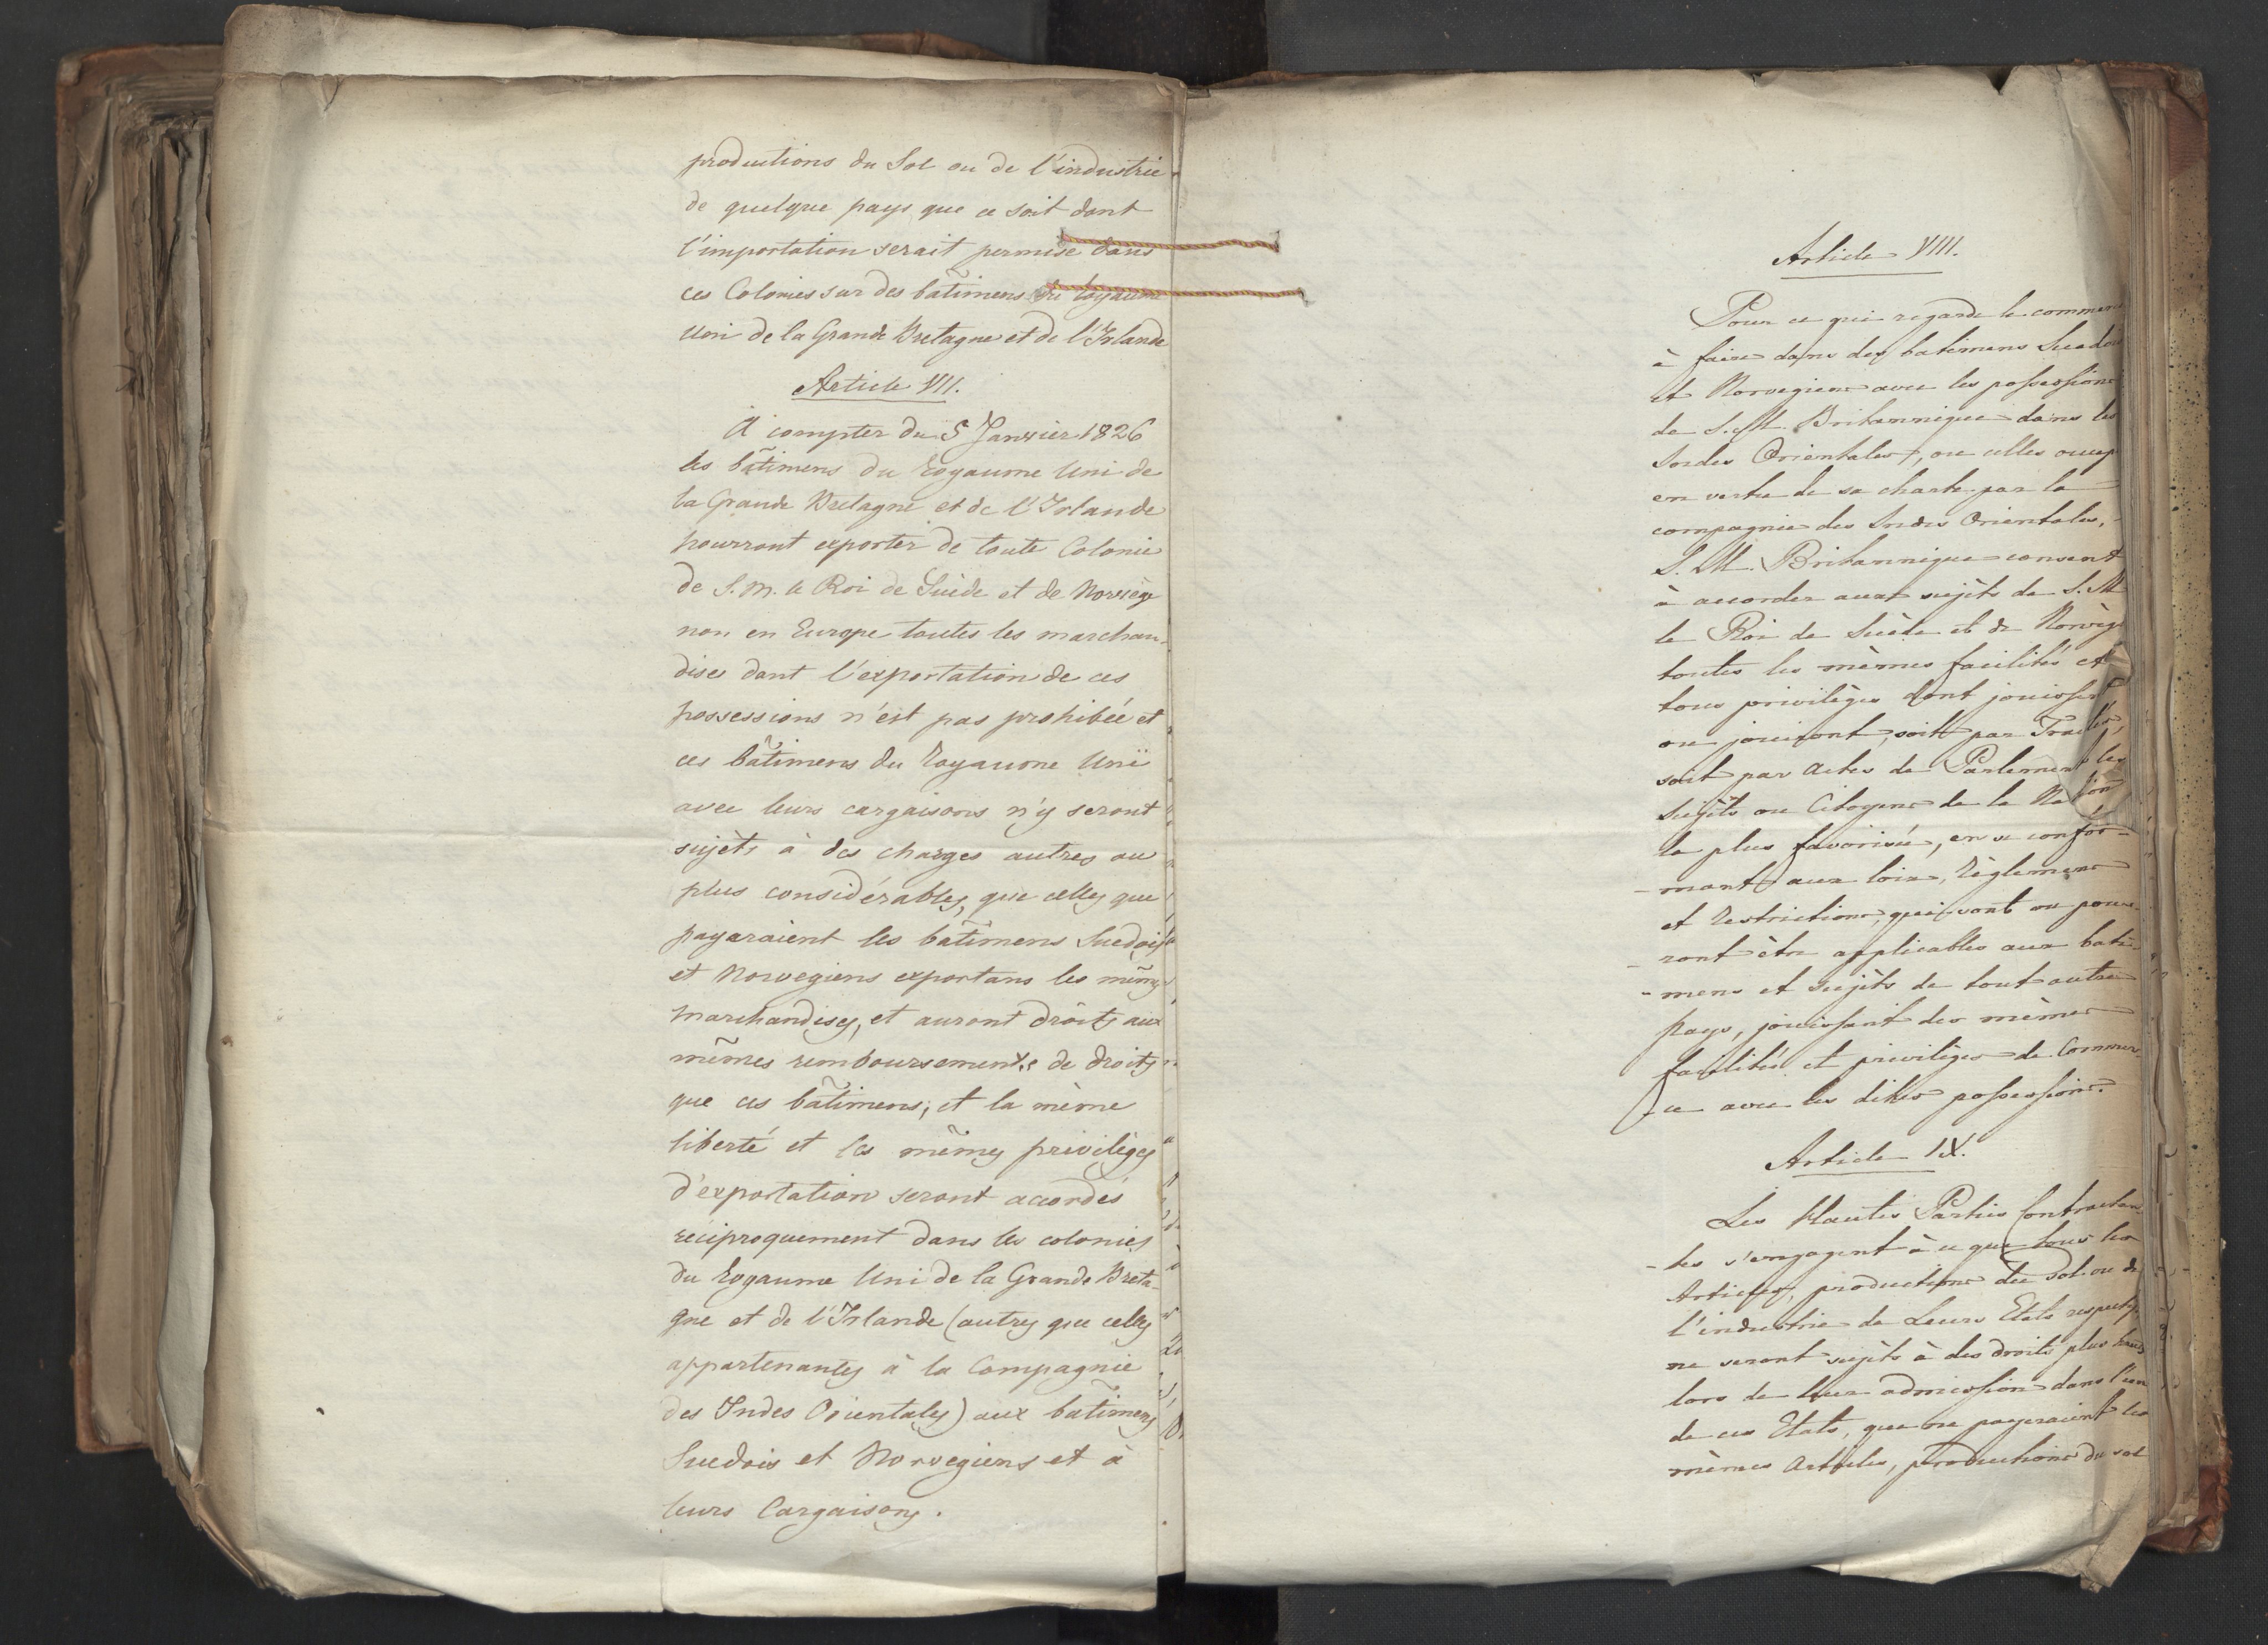 productions du Sol ou de l'industrie
de quelque pays que ce soit dont
l'importation serait permise dans
ces Colonies sur des bâtimens du Royaume
Uni de la Grande Bretagne et de l'Irlande
Article VII.
A compter du 5 Janvier 1826
les bâtimens du Royaume Uni de
la Grande Bretagne et de l'Irlande
pourront exporter de toute Colonie
de S. M. le Roi de Suède et de Norvège
non en Europe toutes les marchan-
dises dont l'exportation de ces
possessions n'est pas prohibée et
ces bâtimens du Royaume Uni
avec leurs cargaisons n'y seront
sujèts à des charges autres ou
plus considérables, que celles que
payaraient les bâtimens Suedois
et Norvegiens exportans les mêmes
marchandises, et auront droits aux
mêmes remboursements de droits
que ces bâtimens; et la même
liberté et les mêmes privilèges
d'exportation seront accordés
réciproquement dans les colonies
du Royaume Uni de la Grande Breta-
gne et de l'Irlande (autres que celles
appartenantes à la Compagnie
des Indes Orientales) aux batimens
Suedois et Norvegiens et à
leurs Cargaisons.
Article VIII.
Pour ce qui regarde le commerce
à faire dans des batimens Suedois
et Norvegiens avec les possessions
de S. M. Britannique dans les
Indes Orientales, ou celles occup
en vertu de sa charte par la
compagnie des Indes Orientales,
S. M. Britannique consent
à accorder aux sujèts de S. M
le Roi de Suède et de Norvège
toutes les mêmes facilités et
tous privilèges dont jouissent
ou jouiront, soit par Traités,
soit par actes de Parlement les
sujèts ou Citoyens de la Nation
la plus favorisée, en se confor-
-mant aux loix, règlemens
et restrictions, qui sont ou pour-
-ront être applicables aux bati-
-mens et sujèts de tout autre
pays, jouissant des mêmes
facilités et privilèges de Commer-
-ce avec les dites possessions.
Article IX.
Les Hautes Parties Contractan
-tes s'engagent à ce que tous les
Articles, productions du sol ou de
l'industrie de Leurs Etats respectifs
ne seront sujèts à des droits plus hauts
lors de leur admission dans l'un
de ces Etats, que ne payeraient les
mêmes Articles, productions du sol